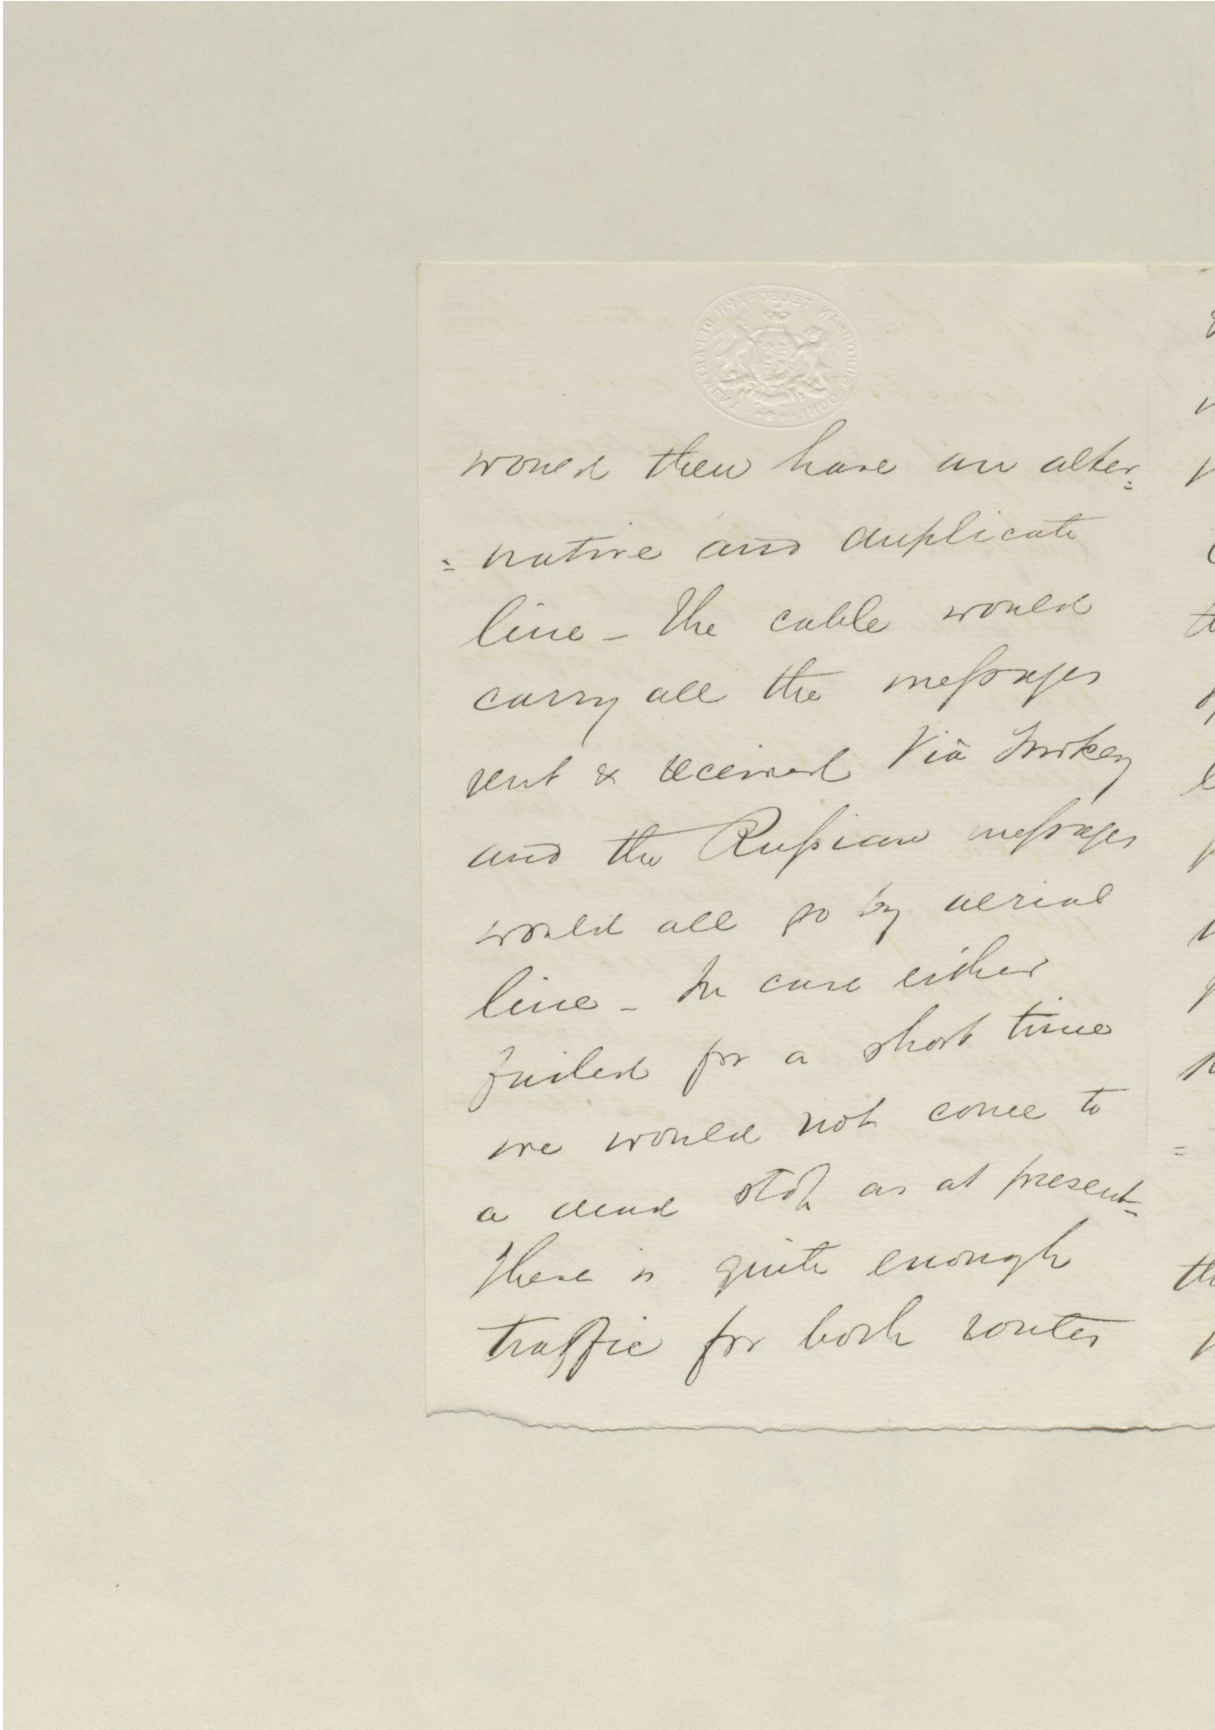 would then have an alter=
=native and duplicate
line - The cable would
carry all the messages
sent & received Viâ Turkey
and the Russian messages
would all go by aerial
line - In case either
failed for a short time
we would not come to
a dead stop as at present -
There is quite enough
traffic for both routes